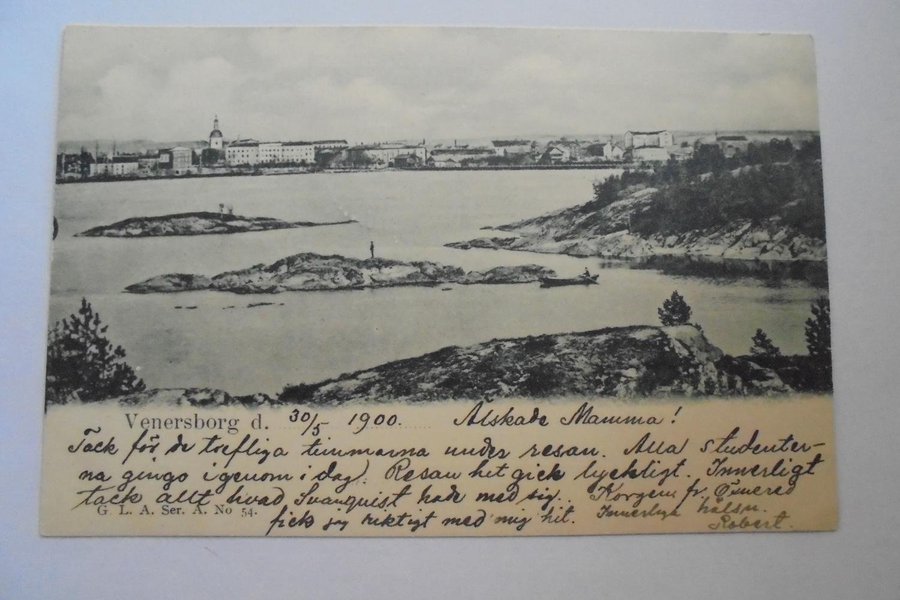 Venersborg d. 30/5 1900. Älskade Mamma!
Tack för de trefliga timmarna under resan. Alla studenter-
na gingo igenom i dag. Resan hit gick lyckligt. Innerligt
tack allt hvad Svanquist hade med sig. Korgen fr. Öxnered
G. L. A. Ser. A. No 54.
fick jag riktigt med mig hit. Innerliga hälsn.
Robert.